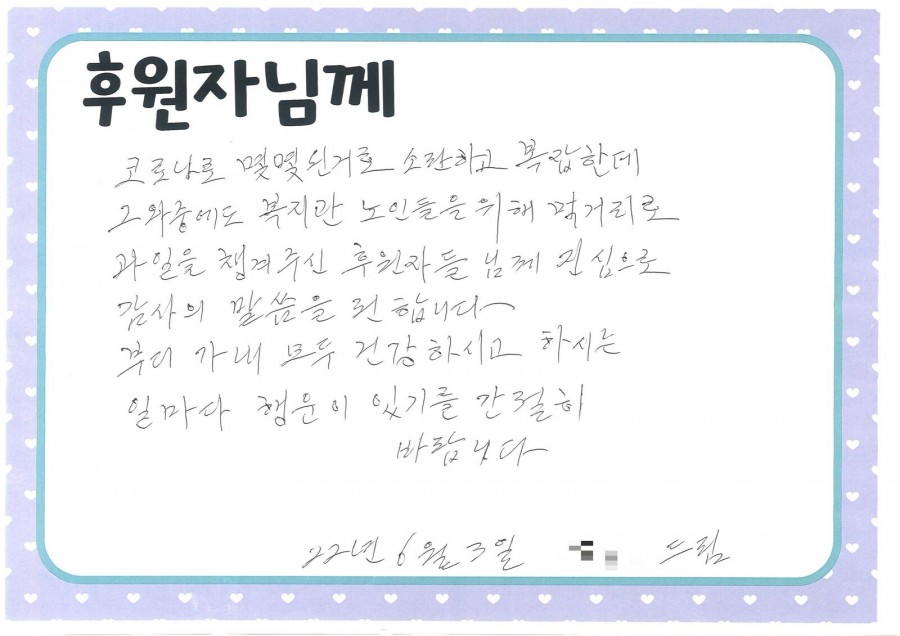 후원자님께
코로나로 몇몇 소란하고 복잡한데
그 와중에도 복지관 노인들을 위해 먹거리로
과일을 챙겨주신 후원자들 님께 진심으로
감사의 말씀을 합니다
부디 가내 모두 건강하시고 하시는
일마다 행운이 있기를 간절히
바랍니다
22년 6월 3일 드림